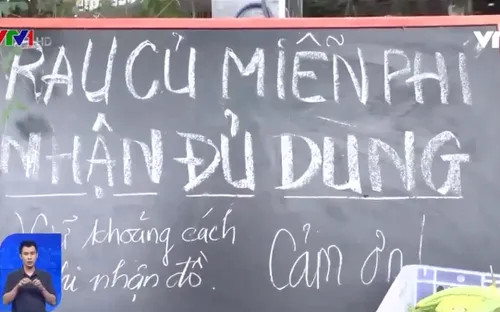 VTV1 HD
VT
RAU CỦ MIỄN PHÍ
NHẬN ĐỦ DÙNG
khoảng cách
nhận đồ.
Cảm ơn!